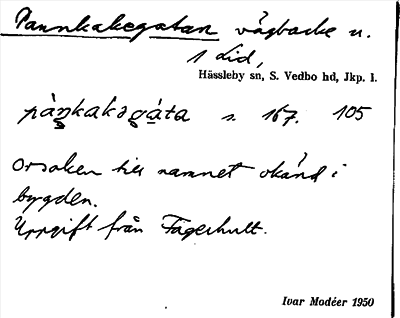 Pannkakegatan vägbacke u.
1 Lid,
Hässleby sn, S. Vedbo hd, Jkp. l.
pàŋkakəgáta s. 167. 105
Orsaken till namnet okänd i
bygden.
Uppgift från Fagerhult.
Ivar Modéer 1950